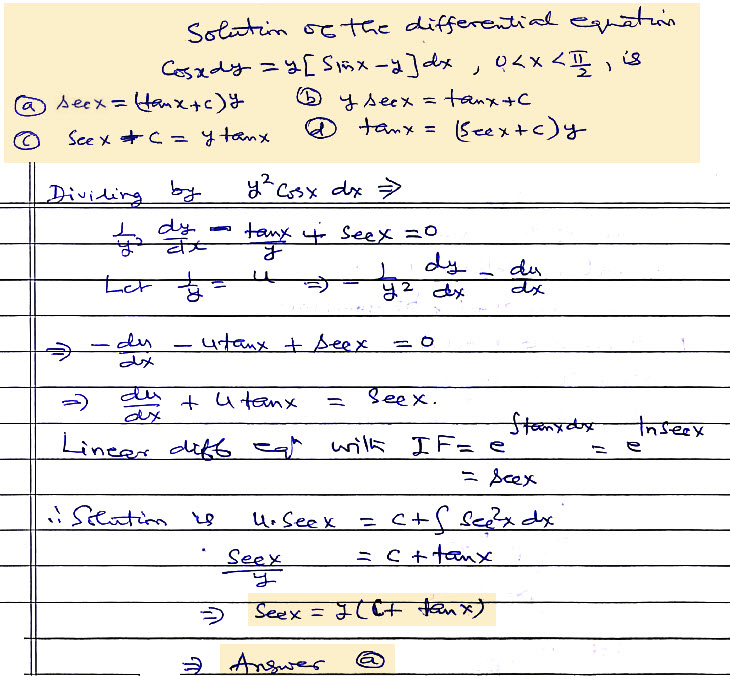 Solution of the differential equation
Cosxdy = y[Sinx-y]dx , 0<x<π/2, is
ⓐ Secx = (tanx+c)y ⓑ y Secx = tanx+c
ⓒ Secx + c = y tanx ⓓ tanx = (Secx+c)y
Dividing by y² Cosx dx ⇒
1/y² dy/dx - tanx/y + Secx = 0
Let 1/y = u ⇒ - 1/y² dy/dx - du/dx
⇒ - du/dx - utanx + Secx = 0
⇒ du/dx + u tanx = Secx.
Linear diff eqⁿ with IF = e^∫tanxdx = e^lnsecx
= secx
∴ Solution is u. Secx = c + ∫ Sec²x dx
Secx/y = c + tanx
⇒ Secx = y(C+ tanx)
⇒ Answer ⓐ